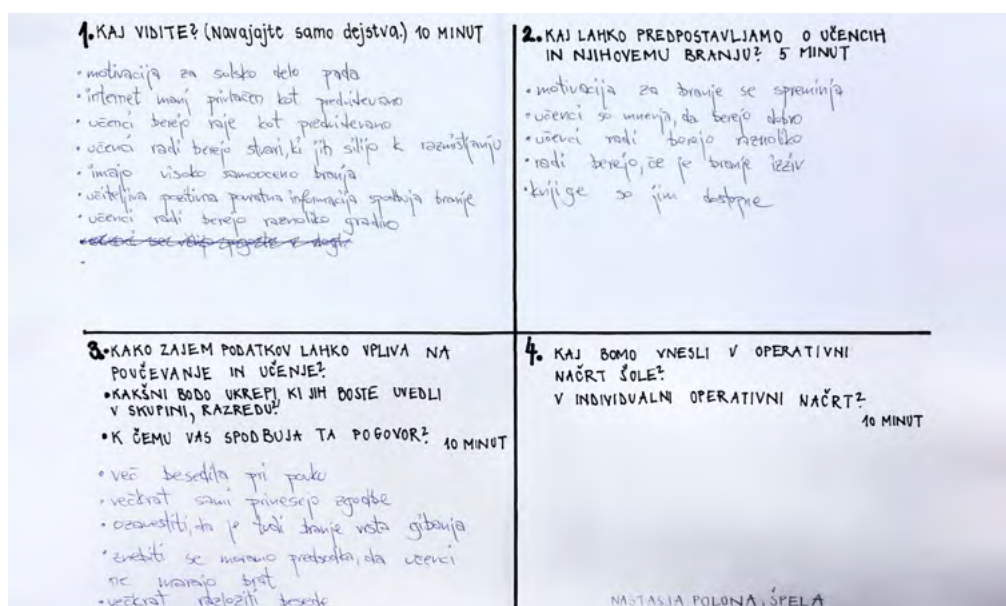 1. KAJ VIDITE? (Navajajte samo dejstva.) 10 MINUT
• motivacija za šolsko delo pada
• internet manj privlačen kot predvidevano
• učenci berejo raje kot predvidevano
• učenci radi berejo stvari, ki jih silijo k razmišljanju
• imajo visoko samooceno branja
• učiteljiva pozitivna povratna informacija spodbuja branje
• učenci radi berejo raznoliko gradivo
2. KAJ LAHKO PREDPOSTAVLJAMO O UČENCIH
IN NJIHOVEMU BRANJU? 5 MINUT
• motivacija za branje se spreminja
• učenci so mnenja, da berejo dobro
• učenci radi berejo raznoliko
• radi berejo, če je branje izziv
• knjige so jim dostopne
3. • KAKO ZAJEM PODATKOV LAHKO VPLIVA NA
POUČEVANJE IN UČENJE?
• KAKŠNI BODO UKREPI, KI JIH BOSTE UVEDLI
V SKUPINI, RAZREDU?
• K ČEMU VAS SPODBUJA TA POGOVOR? 10 MINUT
• več besedila pri pouku
• večkrat sami prinesejo zgodbe
• ozavestiti, da je tudi branje vrsta gibanja
• znebiti se moramo predsodka, da učenci
ne marajo brat
• večkrat razložiti besede
4. KAJ BOMO VNESLI V OPERATIVNI
NAČRT ŠOLE?
V INDIVIDUALNI OPERATIVNI NAČRT?
10 MINUT
NASTASJA POLONA, ŠPELA